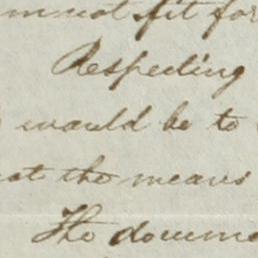 not fit for
Respecting
would be to
at the means
The docume